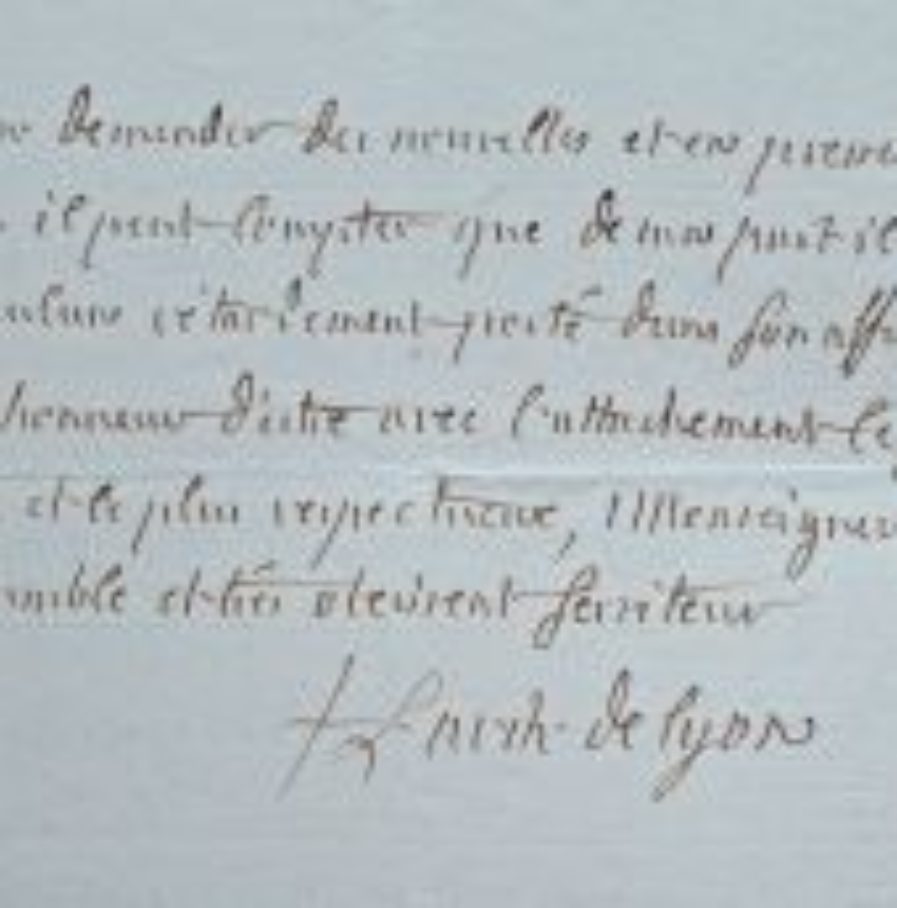 demander des nouvelles et en
il peut compter que de mon part il
porté dans son
honneur d'estre avec l'attachement le
et le plus respectueux, Monseigneur
umble et tres obeissent serviteur
arch. de lyon